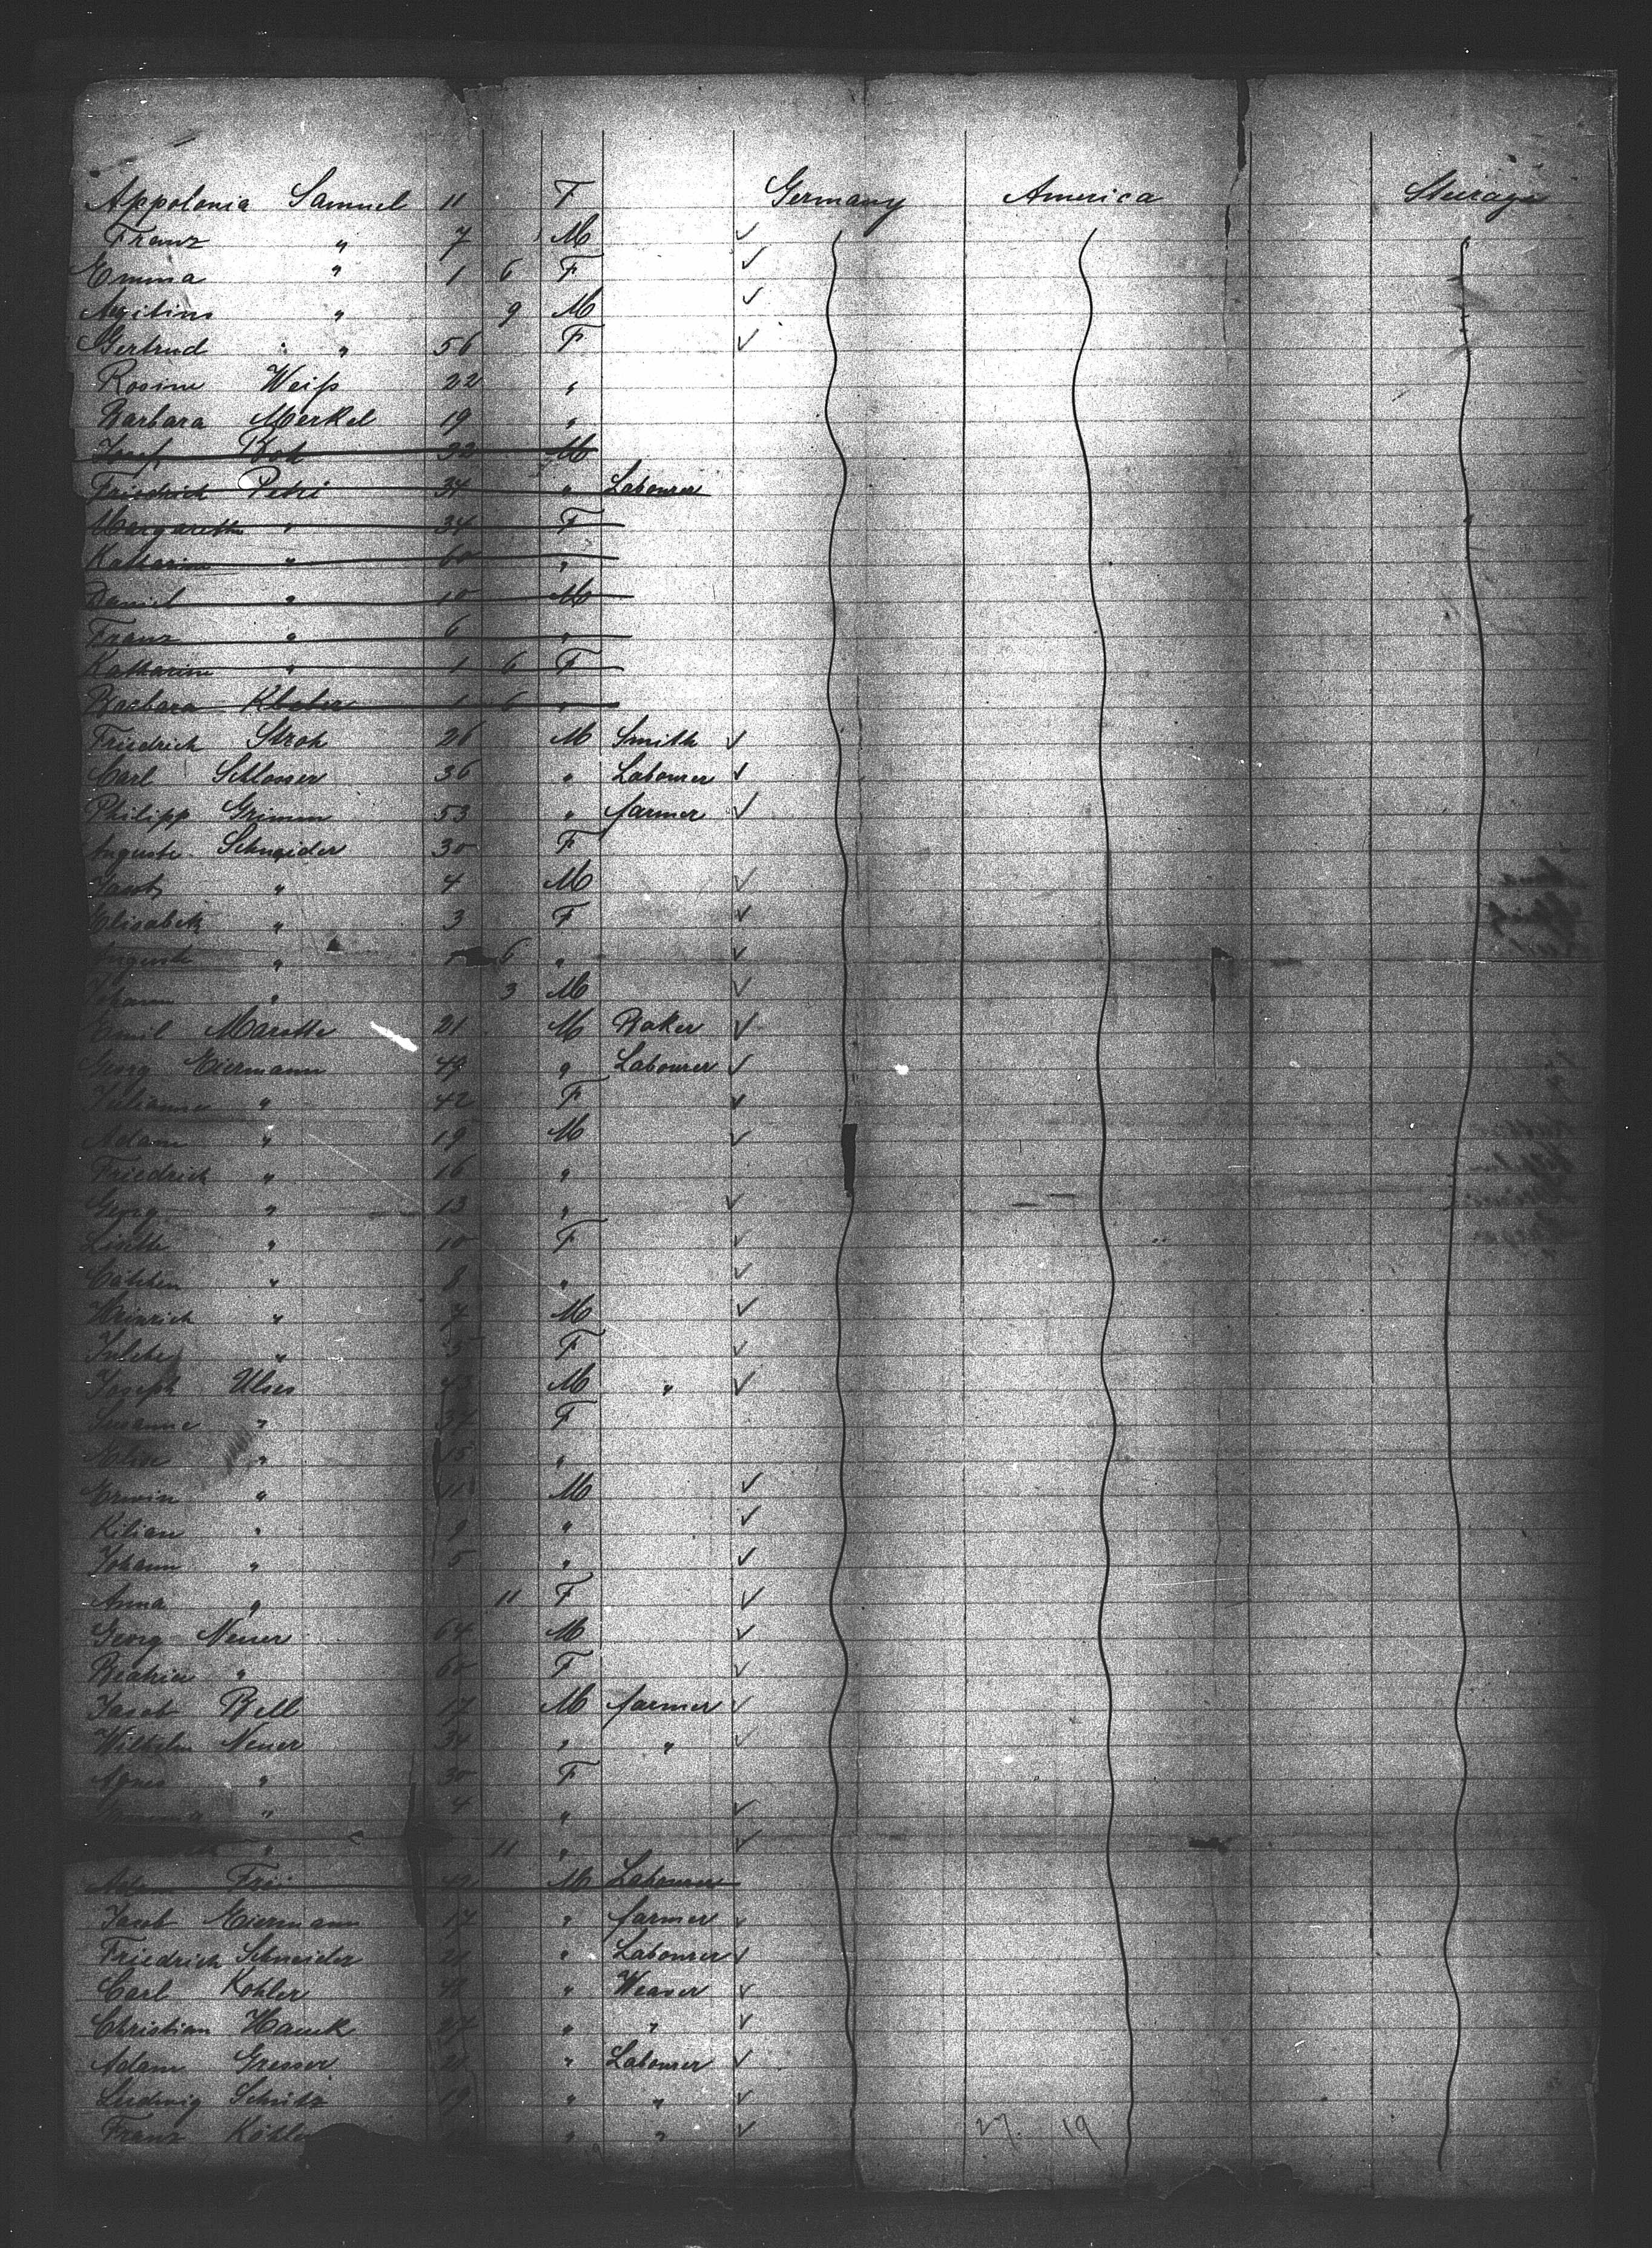 Appolonia Samuel 11 F Germany America Steerage
Franz " 7 M ✓
Emma " 1 6 F ✓
" 9 M ✓
Gertrud " 56 F ✓
Rosine Weiß 22 "
Barbara Merkel 19 "
Josef 32 M
Friedrich Petri 34 " Labourer
Margaretha " 34 F
Katharina " 60 "
Daniel " 10 M
Franz " 6 "
Katharine " 1 6 F
Barbara Kleber 1 6 "
Friedrich Stroh 26 M Smith ✓
Carl Schlosser 36 " Labourer ✓
Philipp Grimm 53 " farmer ✓
Auguste Schneider 30 F
Jacob " 4 M ✓
Elisabeth " 3 F ✓
Auguste " 6 " ✓
Johann " 3 M ✓
Emil Marotte 21 M Baker ✓
Georg Eiermann 49 " Labourer ✓
Julianne " 42 F ✓
Adam " 19 M ✓
Friedrich " 16 "
Georg " 13 " ✓
Lisette " 10 F ✓
" 8 " ✓
Heinrich " 7 M ✓
" 5 F ✓
Joseph 43 M " ✓
Susanne " 34 F
Elise " 15 "
Erwin " 11 M ✓
Kilian " 9 " ✓
Johann " 5 " ✓
Anna " 11 F ✓
Georg Neuer 64 M ✓
" 60 F ✓
Jacob Bell 17 M farmer ✓
Wilhelm Neuer 34 " " ✓
Agnes " 30 F
" 4 " ✓
" 11 " ✓
Adam 42 M Labourer
Jacob Eiermann 17 " farmer ✓
Friedrich Schneider 21 " Labourer ✓
Carl Kohler " Weaver ✓
Christian Hauck 27 " " ✓
Adam 21 " Labourer ✓
Ludwig 19 " " ✓
Franz " " ✓
27. 19